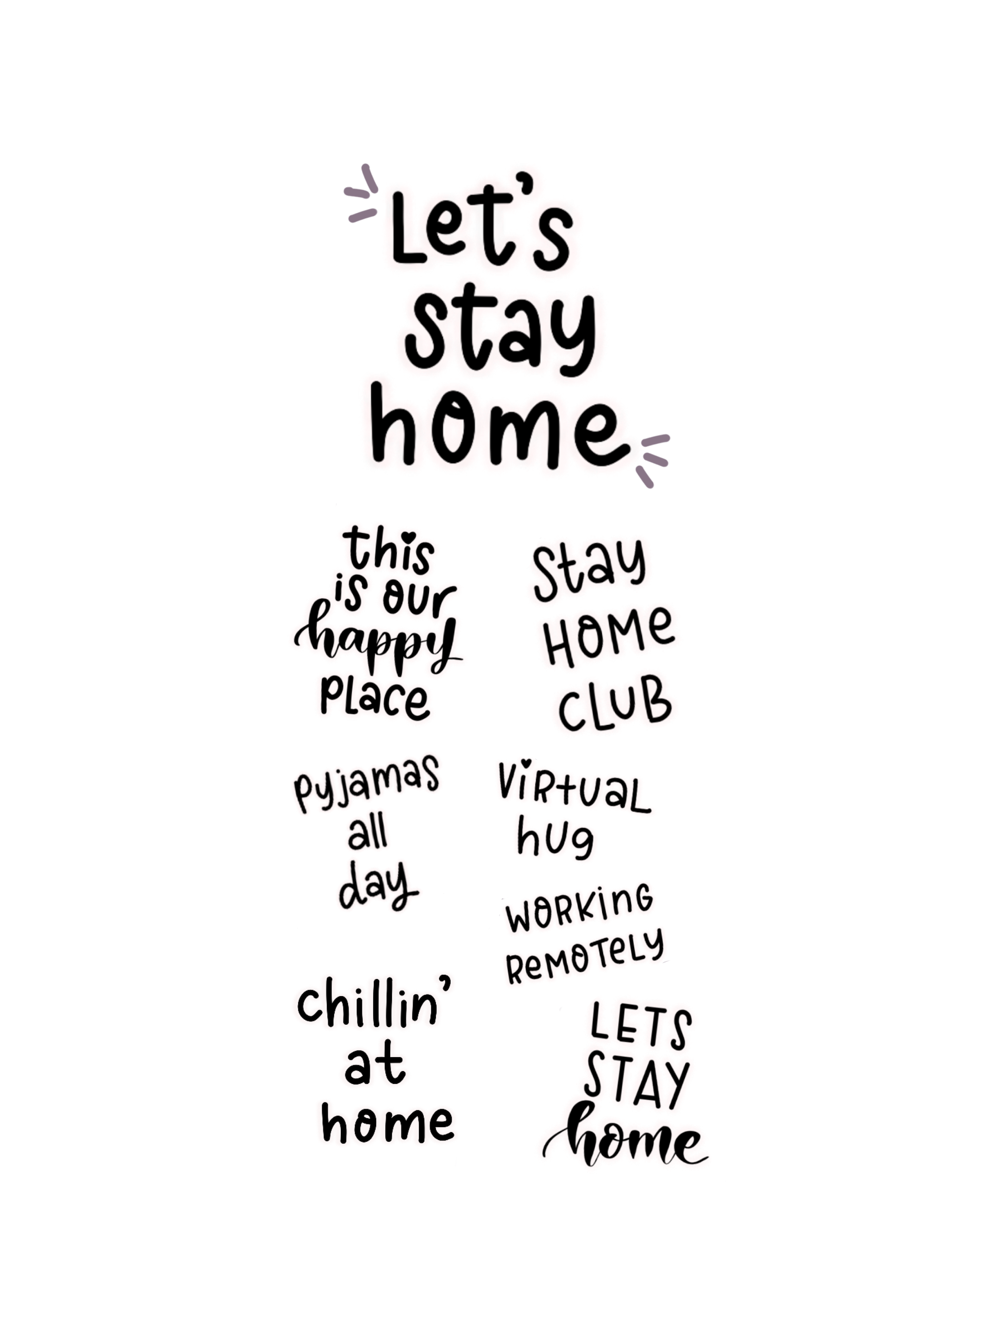 Let's
stay
home
this
is our
happy
PLace
Stay
HOMe
CLUB
PYjamas
all
day
ViRtUaL
hUg
WORKinG
ReMOTeLY
chillin'
at
home
LETS
STAY
home